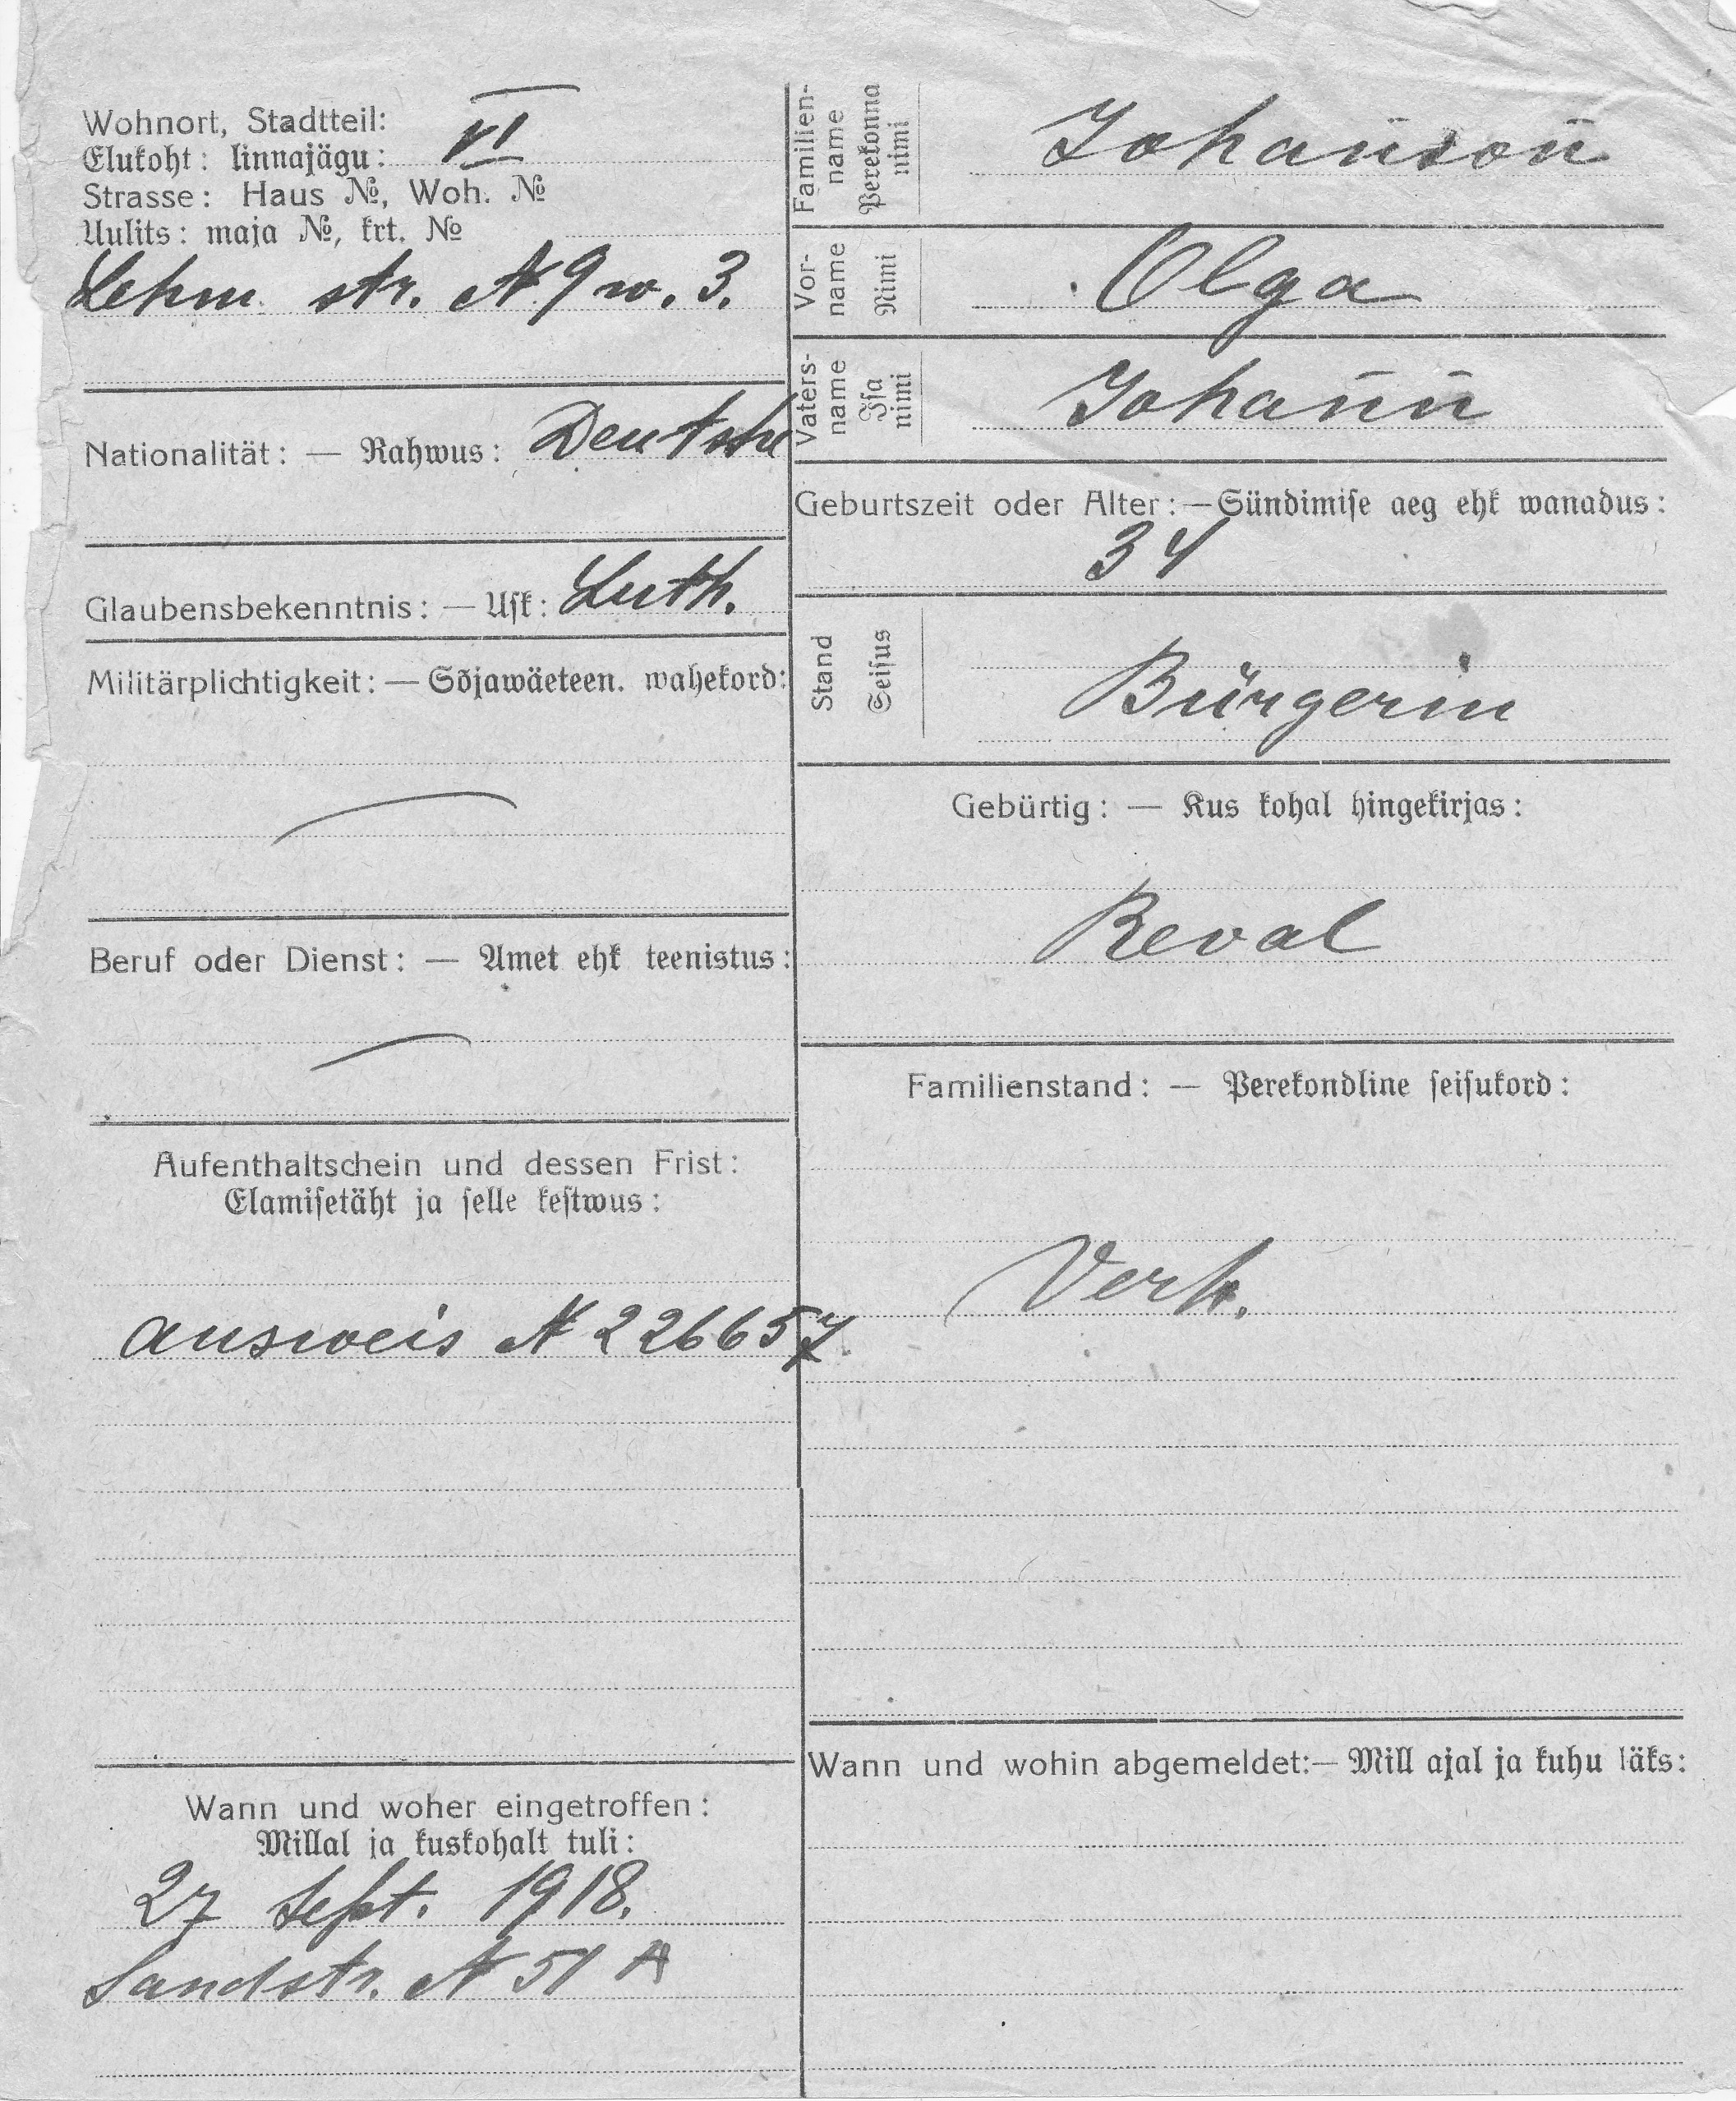 Wohnort, Stadtteil:
Elukoht: linnajägu: VI
Strasse: Haus №, Woh. №
Uulits: maja №, krt. №
Lehm str. № 9 w. 3.
Nationalität: — Rahwus: Deutsche
Glaubensbekenntnis: — Usk: Luth.
Militärplichtigkeit: — Sõjawäeteen. wahekord:
Beruf oder Dienst: — Amet ehk teenistus:
Aufenthaltschein und dessen Frist:
Elamisetäht ja selle kestwus:
Ausweis № 226657.
Wann und woher eingetroffen:
Millal ja kuskohalt tuli:
27 Sept. 1918.
Sandstr. № 51 A
Familien-
name
Perekonna
nimi
Johanson
Vor-
name
Nimi
Olga
Vaters-
name
Isa
nimi
Johann
Geburtszeit oder Alter: — Sündimise aeg ehk wanadus:
34
Stand
Seisus
Bürgerin
Gebürtig: — Kus kohal hingekirjas:
Reval
Familienstand: — Perekondline seisukord:
Verh.
Wann und wohin abgemeldet: — Mill ajal ja kuhu läks: